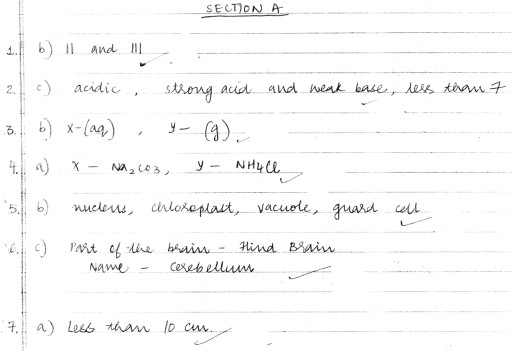 SECTION A
1. b) II and III
2. c) acidic, strong acid and weak base, less than 7
3. b) x-(aq), y- (g)
4. a) x - Na2CO3, y - NH4Cl
5. b) nucleus, chloroplast, vacuole, guard cell
6. c) Part of the brain - Hind Brain
Name - Cerebellum
7. a) Less than 10 cm.